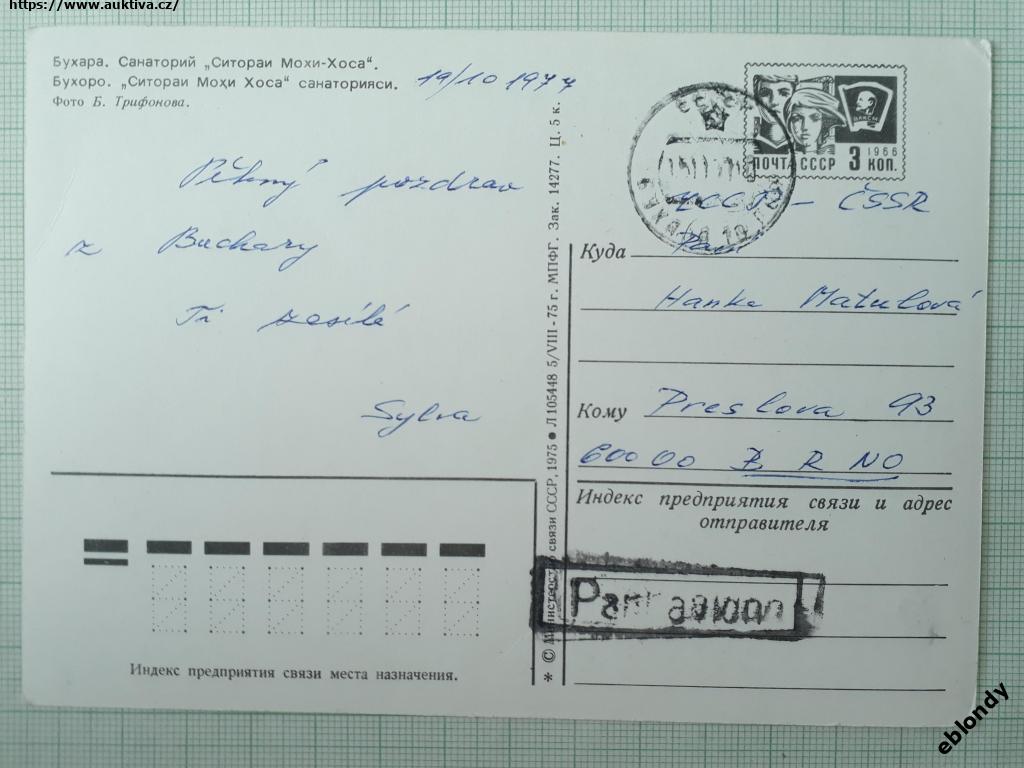 https://www.auktiva.cz/
Бухара. Санаторий „Ситораи Мохи-Хоса“.
Бухоро. „Ситораи Моҳи Хоса“ санаторияси.
Фото Б. Трифонова.
19/10 1977
Pěkný pozdrav
z Buchary
Ti zasílá
Sylva
Индекс предприятия связи места назначения.
* © Министерство связи СССР, 1975 ● Л 105448 5/VIII - 75 г. МПФГ. Зак. 14277. Ц. 5 к.
СССР
ВЛКСМ
1966
ПОЧТА СССР 3 КОП.
ЧССР - ČSSR
Куда
Hanka Matulová
Кому Preslova 93
60000 BRNO
Индекс предприятия связи и адрес
отправителя
Par avion
eblondy